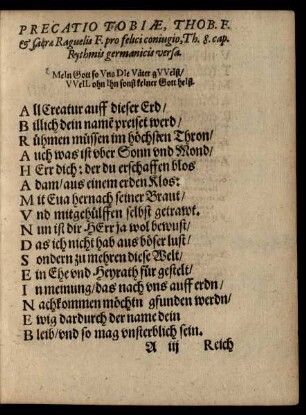 PRECATIO TOBIÆ, THOB. F.
& saræ Raguelis F. pro felici coniugio, Th. 8. cap.
Rythmis germanicis versa.
MeIn Gott so Vns DIe Väter gVVeIst/
VVeIL ohn Ihn sonst keIner Gott heIst.
All Creatur auff dieser Erd/
Billich dein namē preiset werd/
Rühmen müssen im höchsten Thron/
Auch was ist vber Sonn vnd Mond/
HErr dich: der du erschaffen blos
Adam/ aus einem erden Klos:
Mit Eua hernach seiner Braut/
Vnd mitgehülffen selbst getrawt.
Nun ist dir HErr ja wol bewust/
Das ich nicht hab aus böser lust/
Sondern zu mehren diese Welt/
Ein Ehe vnd Heyrath für gestelt/
In meinung/ das nach vns auff erdn/
Nachkommen möchtn gfunden werdn/
Ewig dardurch der name dein
Bleib/ vnd so mag vnsterblich sein.
A iij Reich